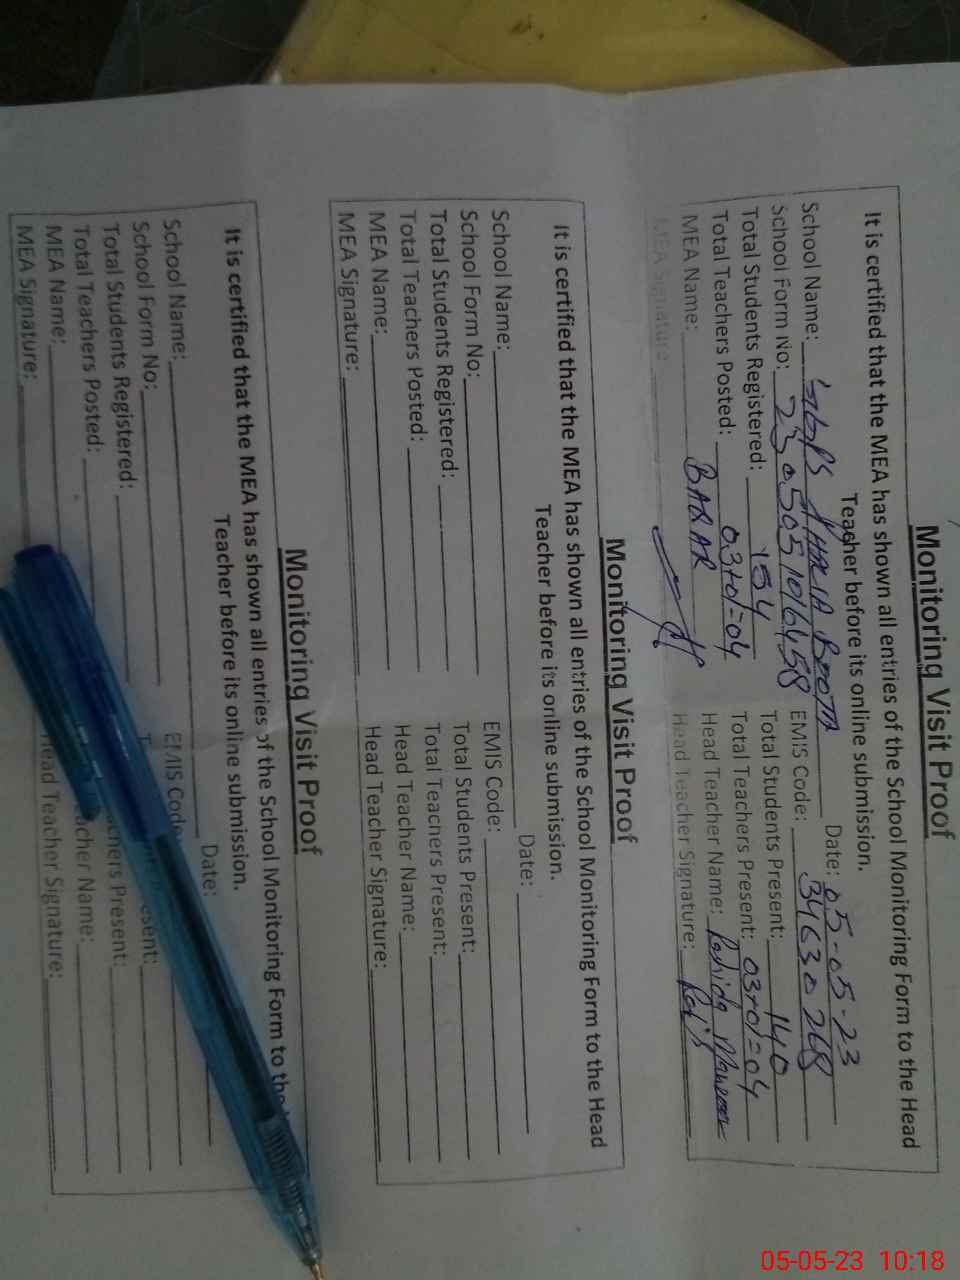 Monitoring Visit Proof
It is certified that the MEA has shown all entries of the School Monitoring Form to the Head
Teacher before its online submission.
Date: 05-05-23
School Name: BOOTA
School Form No: EMIS Code: 34630268
Total Students Registered: 154 Total Students Present: 140
Total Teachers Posted: 03+01=04 Total Teachers Present: 03+01=04
MEA Name: BABAR Head Teacher Name:
MEA Signature Head Teacher Signature:
Monitoring Visit Proof
It is certified that the MEA has shown all entries of the School Monitoring Form to the Head
Teacher before its online submission.
Date:
School Name:
School Form No: EMIS Code:
Total Students Registered: Total Students Present:
Total Teachers Posted: Total Teachers Present:
MEA Name: Head Teacher Name:
MEA Signature: Head Teacher Signature:
Monitoring Visit Proof
It is certified that the MEA has shown all entries of the School Monitoring Form to the
Teacher before its online submission.
Date:
School Name:
School Form No: EMIS Code
Total Students Registered: esent:
Total Teachers Posted: chers Present:
MEA Name: acher Name:
MEA Signature: Head Teacher Signature:
05-05-23 10:18